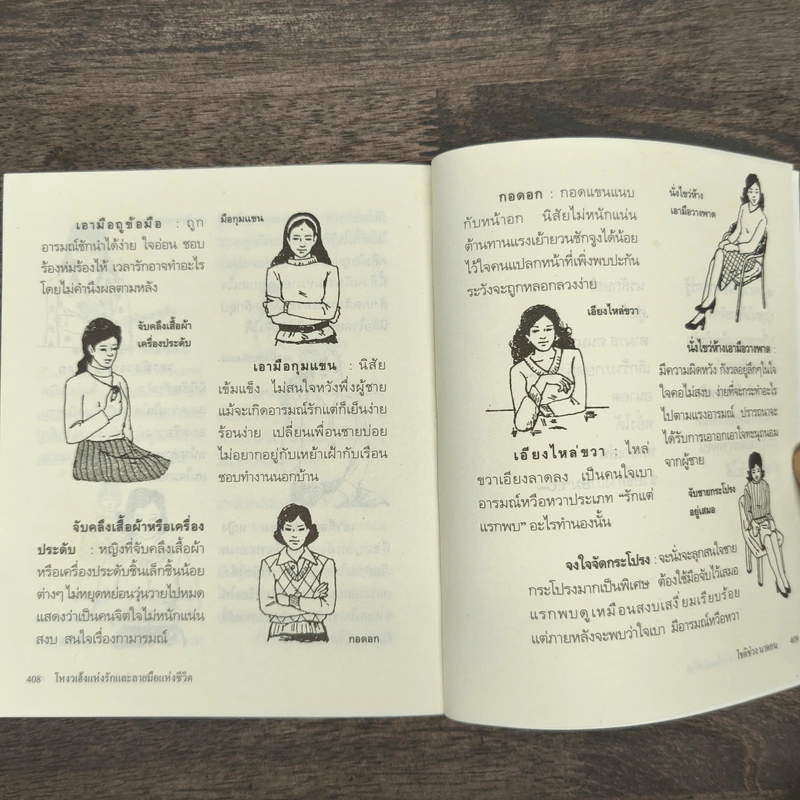 เอามือถูข้อมือ : ถูก
อารมณ์ชักนำได้ง่าย ใจอ่อน ชอบ
ร้องห่มร้องไห้ เวลารักอาจทำอะไร
โดยไม่คำนึงผลตามหลัง
จับคลึงเสื้อผ้า
เครื่องประดับ
จับคลึงเสื้อผ้าหรือเครื่อง
ประดับ : หญิงที่จับคลึงเสื้อผ้า
หรือเครื่องประดับชิ้นเล็กชิ้นน้อย
ต่างๆ ไม่หยุดหย่อนวุ่นวายไปหมด
แสดงว่าเป็นคนจิตใจไม่หนักแน่น
สงบ สนใจเรื่องกามารมณ์
มือกุมแขน
เอามือกุมแขน : นิสัย
เข้มแข็ง ไม่สนใจหวังพึ่งผู้ชาย
แม้จะเกิดอารมณ์รักแต่ก็เย็นง่าย
ร้อนง่าย เปลี่ยนเพื่อนชายบ่อย
ไม่อยากอยู่กับเหย้าเฝ้ากับเรือน
ชอบทำงานนอกบ้าน
กอดอก
408 โหงวเฮ้งแห่งรักและลายมือแห่งชีวิต
กอดอก : กอดแขนแนบ
กับหน้าอก นิสัยไม่หนักแน่น
ต้านทานแรงเย้ายวนชักจูงได้น้อย
ไว้ใจคนแปลกหน้าที่เพิ่งพบปะกัน
ระวังจะถูกหลอกลวงง่าย
เอียงไหล่ขวา
เอียงไหล่ขวา : ไหล่
ขวาเอียงลาดลง เป็นคนใจเบา
อารมณ์หวือหวาประเภท “รักแต่
แรกพบ” อะไรทำนองนั้น
นั่งไขว่ห้าง
เอามือวางพาด
นั่งไขว่ห้างเอามือวางพาด :
มีความผิดหวัง กังวลอยู่ลึกๆ ในใจ
ใจคอไม่สงบ ง่ายที่จะกระทำอะไร
ไปตามแรงอารมณ์ ปรารถนาจะ
ได้รับการเอาอกเอาใจทะนุถนอม
จากผู้ชาย
จับชายกระโปรง
อยู่เสมอ
จงใจจัดกระโปรง : จะนั่งจะลุกสนใจชาย
กระโปรงมากเป็นพิเศษ ต้องใช้มือจับไว้เสมอ
แรกพบดูเหมือนสงบเสงี่ยมเรียบร้อย
แต่ภายหลังจะพบว่าใจเบา มีอารมณ์หวือหวา
โชติช่วง นาดอน 409